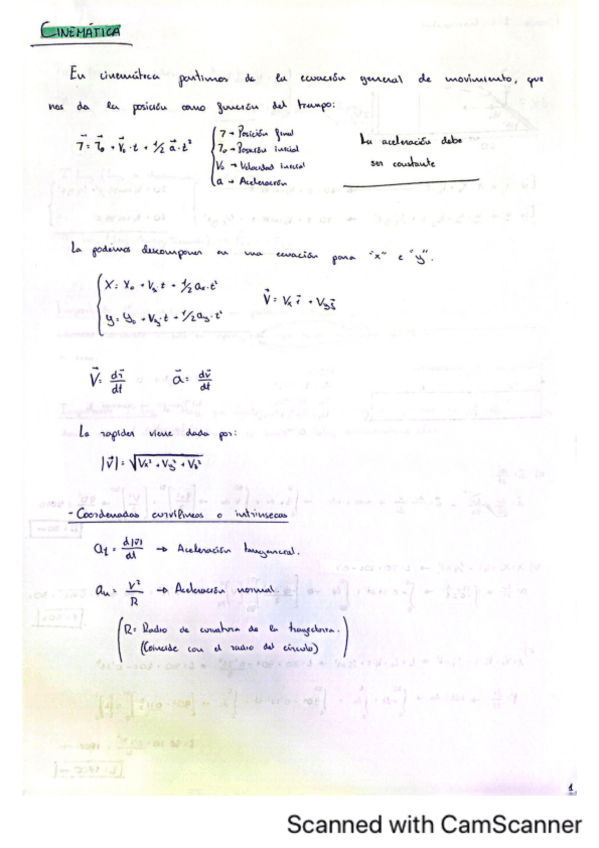 CINEMÁTICA
En cinemática partimos de la ecuación general de movimiento, que
nos da la posición como función del tiempo:
r⃗ = r⃗₀ + v⃗₀·t + 1/2 a⃗·t²
r → Posición final
r₀ → Posición inicial
V₀ → Velocidad inicial
a → Aceleración
La aceleración debe
ser constante
La podemos descomponer en una ecuación para "x" e "y".
x = x₀ + Vₓ·t + 1/2 aₓ·t²
y = y₀ + Vy·t + 1/2 ay·t²
V⃗ = Vₓ i⃗ + Vy j⃗
V⃗ = dr⃗/dt a⃗ = dv⃗/dt
La rapidez viene dada por:
|v⃗| = √Vx² + Vy² + Vz²
- Coordenadas curvilíneas o intrínsecas
at = d|v⃗|/dt → Aceleración tangencial.
an = V²/R → Aceleración normal.
(R = Radio de curvatura de la trayectoria.
(Coincide con el radio del círculo))
1
Scanned with CamScanner